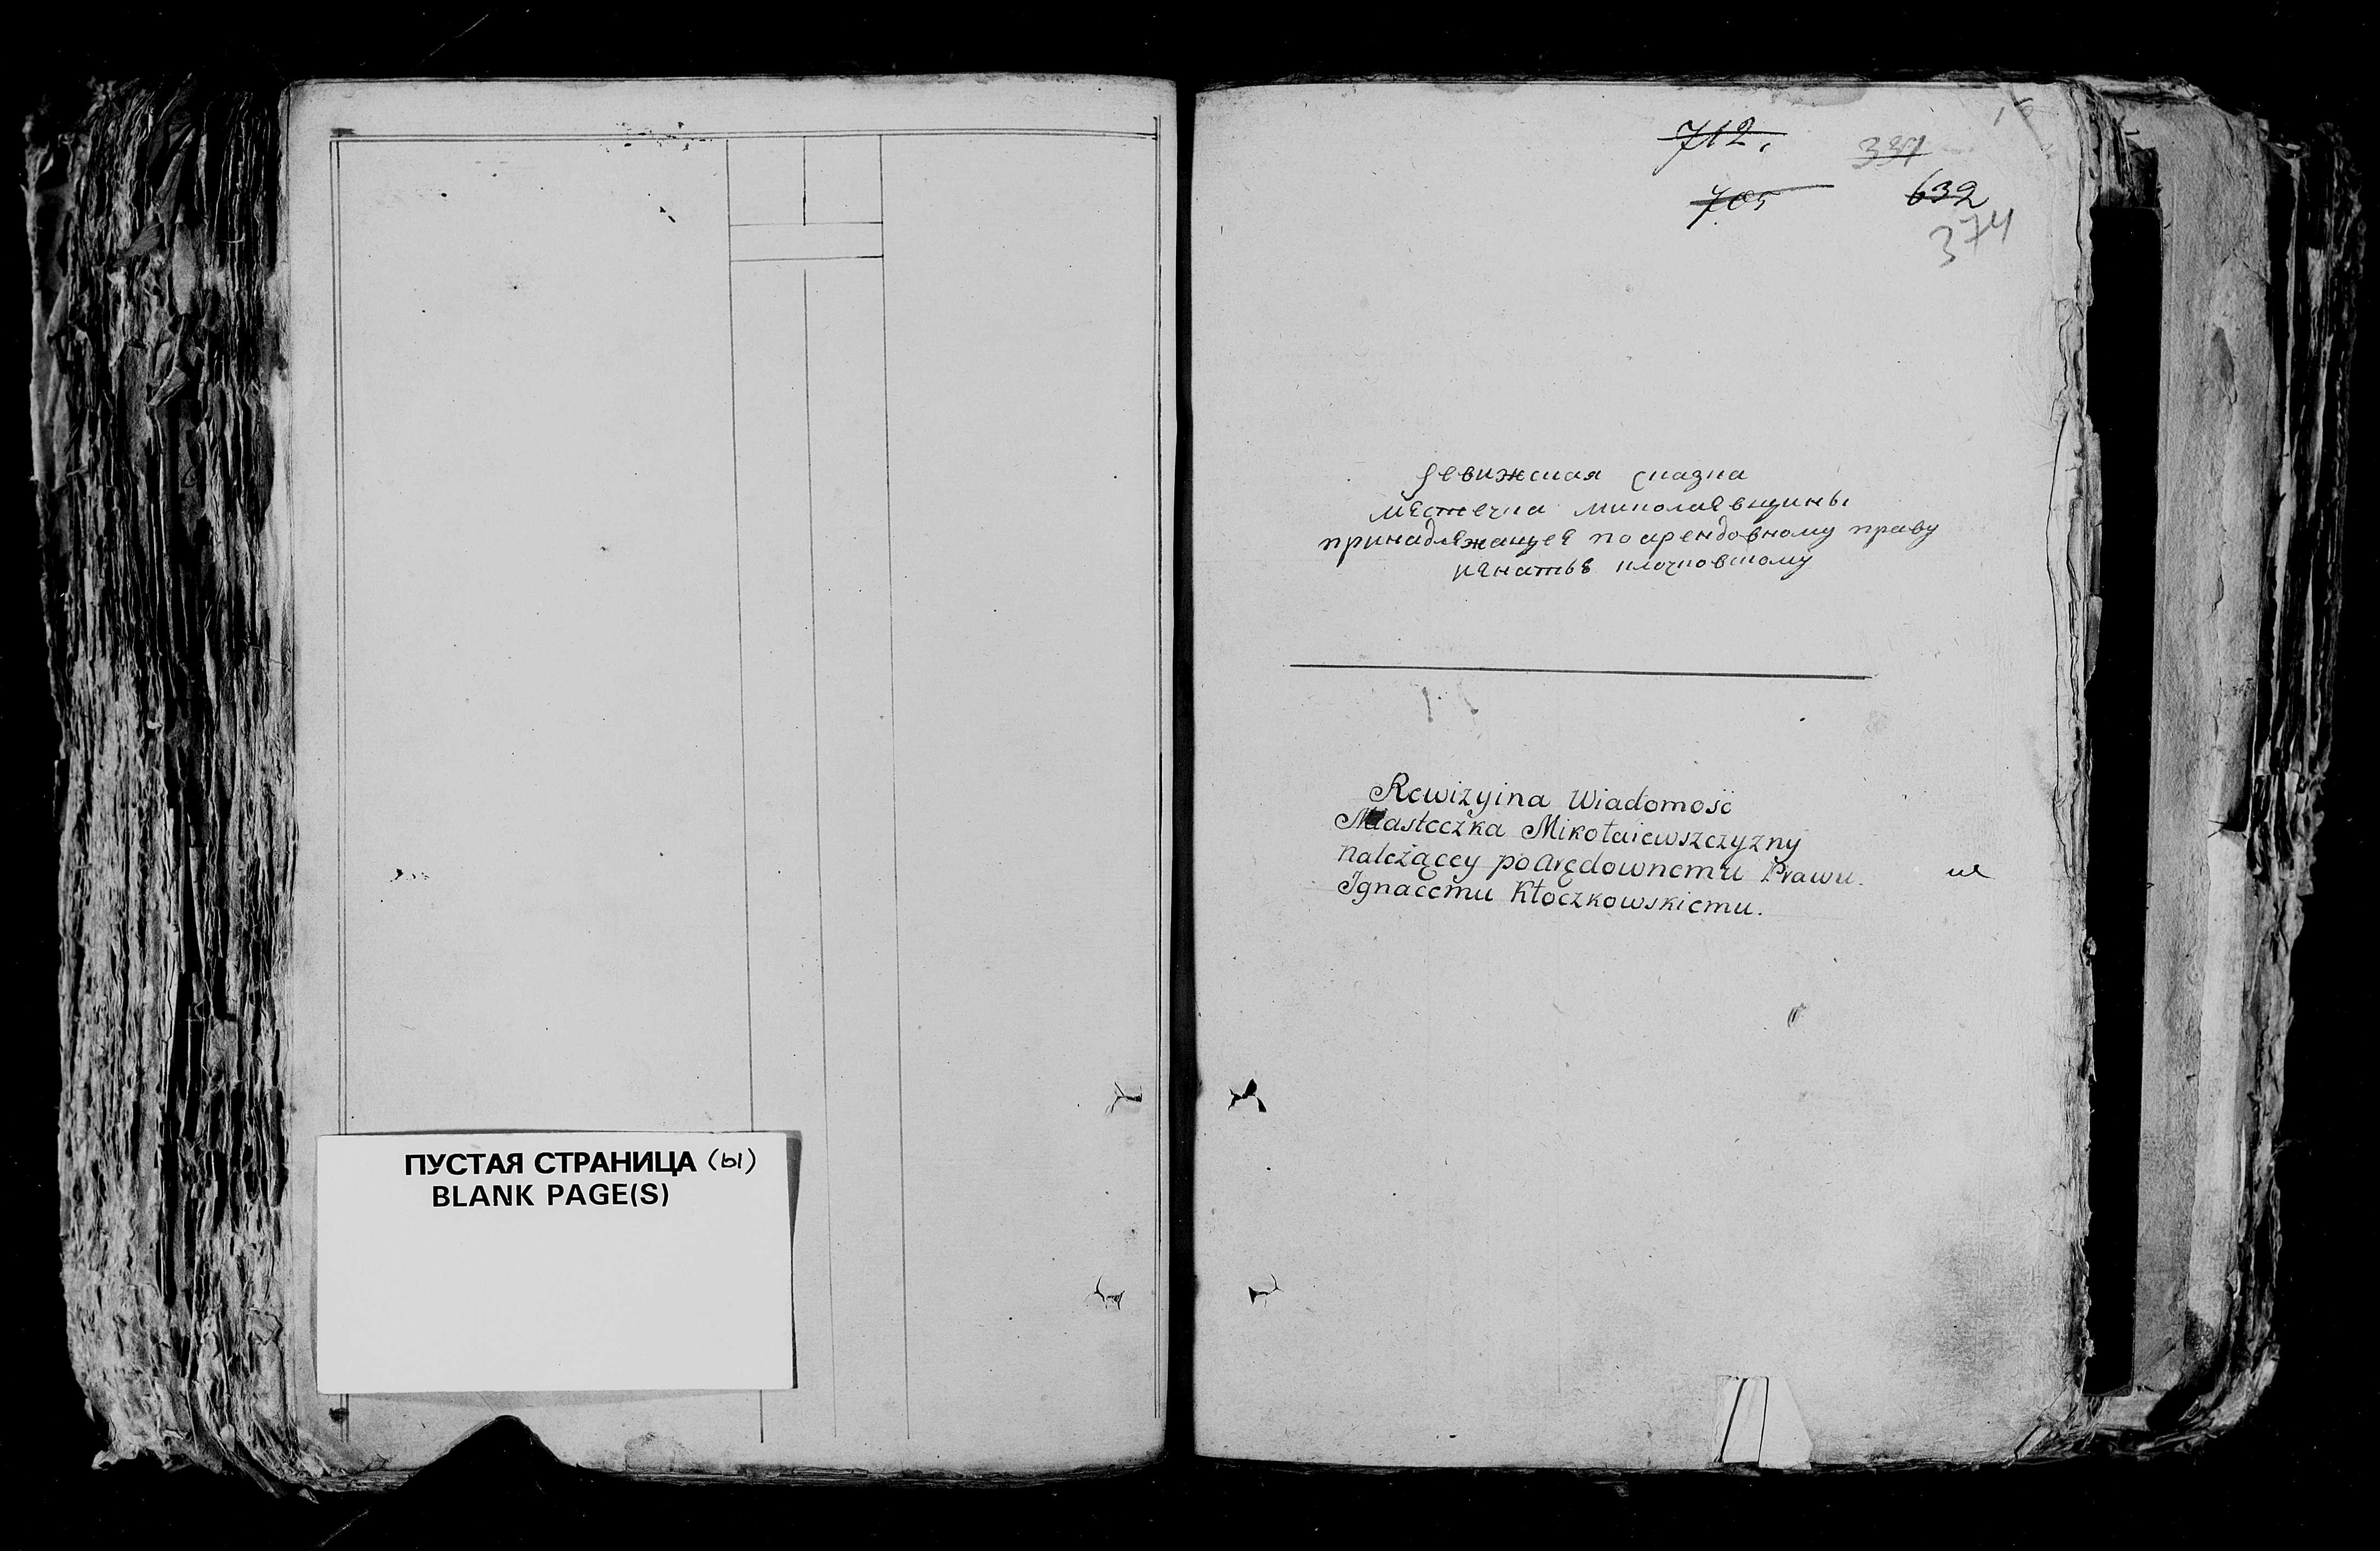 ПУСТАЯ СТРАНИЦА (ы)
BLANK PAGE(S)
712.
331
705
632
374
ревижская сказка
мѣстечка миколаевщины
принадлежащее по арендовному праву
игнатью клочковскому
Rewizyina Wiadomość
Miasteczka Mikołaiewszczyzny
należącey po Arędownemu Prawu.
Ignacemu Kłoczkowskiemu.